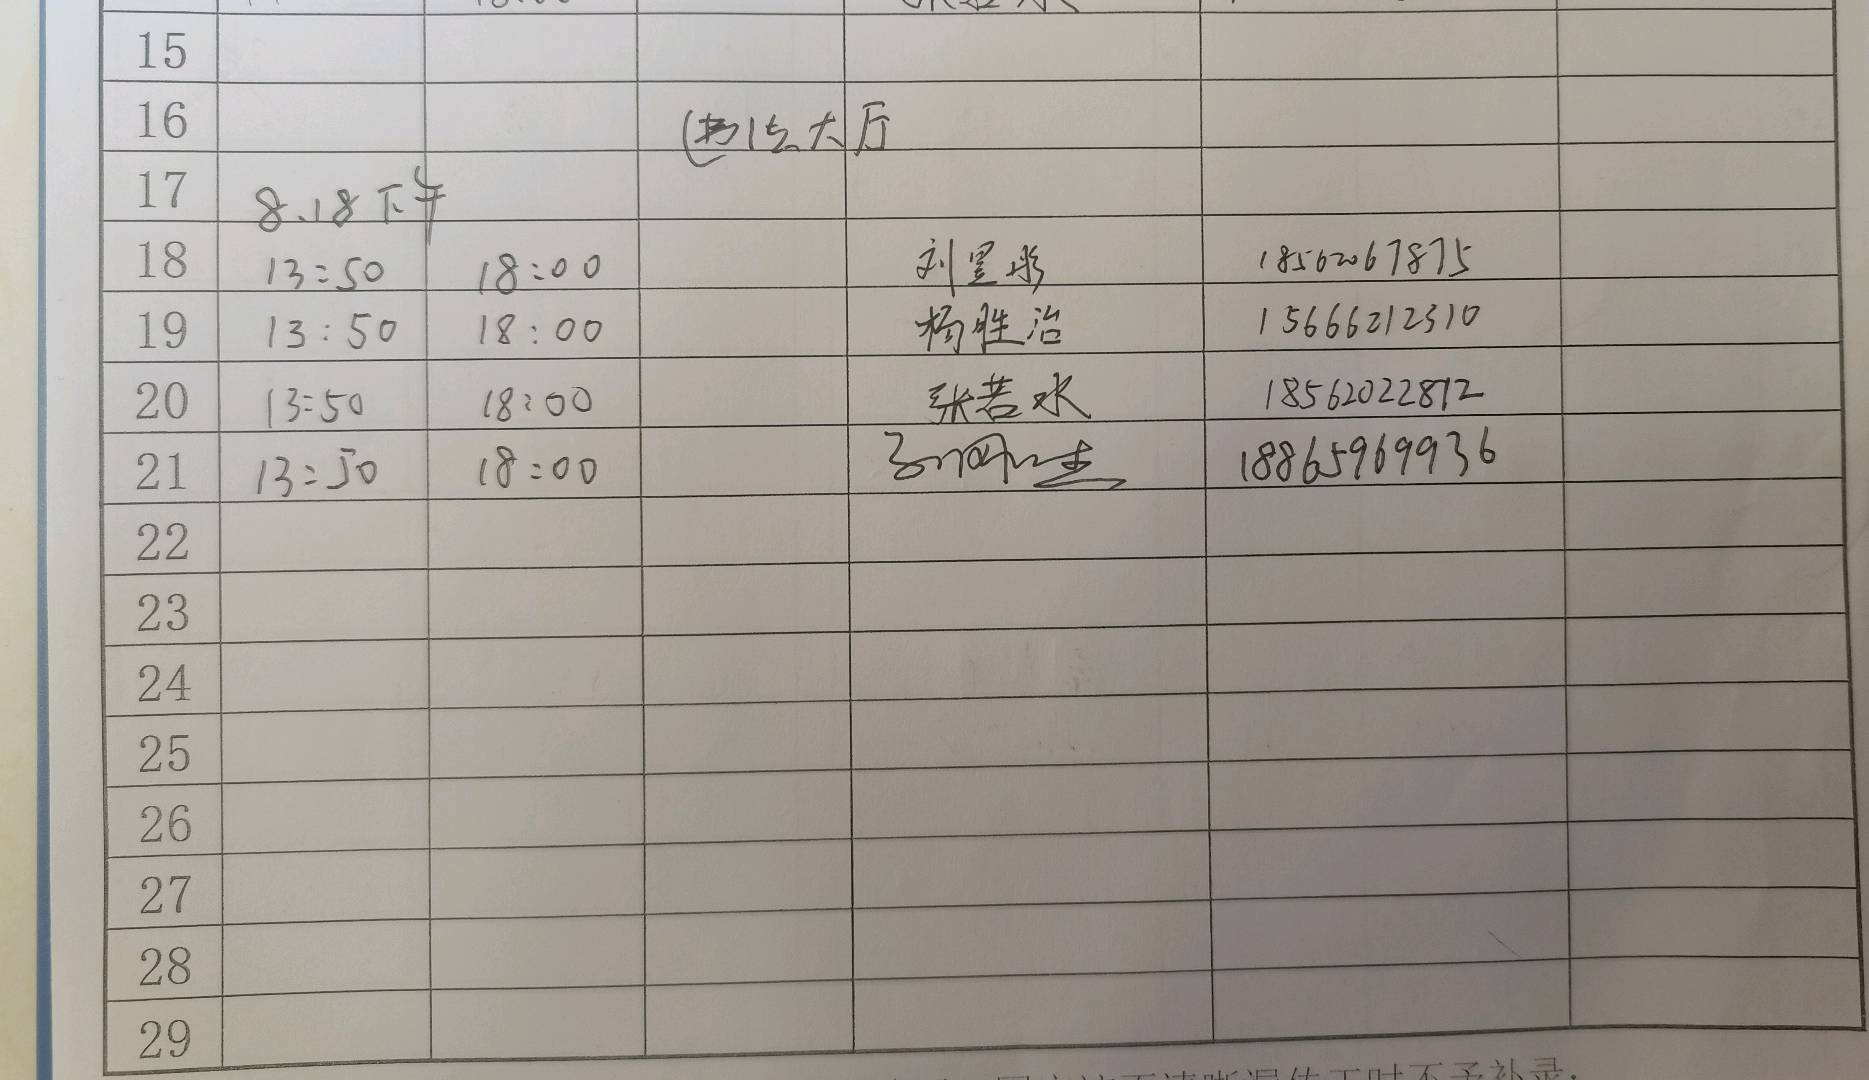 15
16 大厅
17 8.18下午
18 13:50 18:00 刘昱彤 18562067875
19 13:50 18:00 杨胜治 15666212310
20 13:50 18:00 张若水 18562022872
21 13:50 18:00 18865969936
22
23
24
25
26
27
28
29
不予补录.